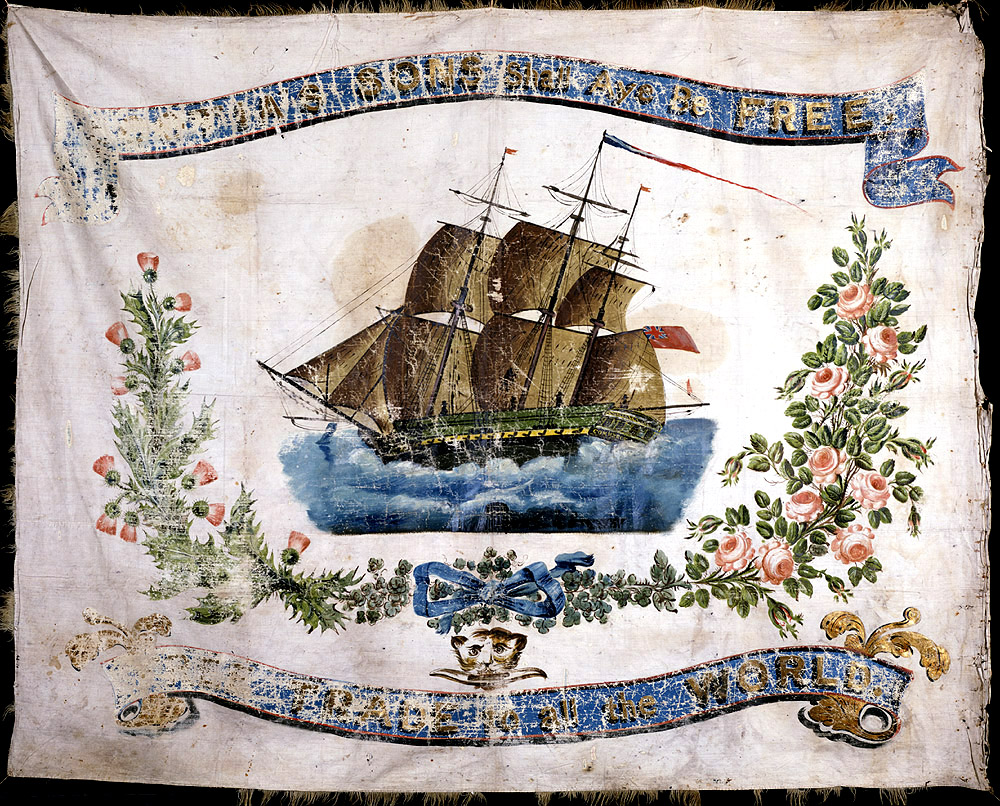 SONS Shall Aye Be FREE.
TRADE to all the WORLD.